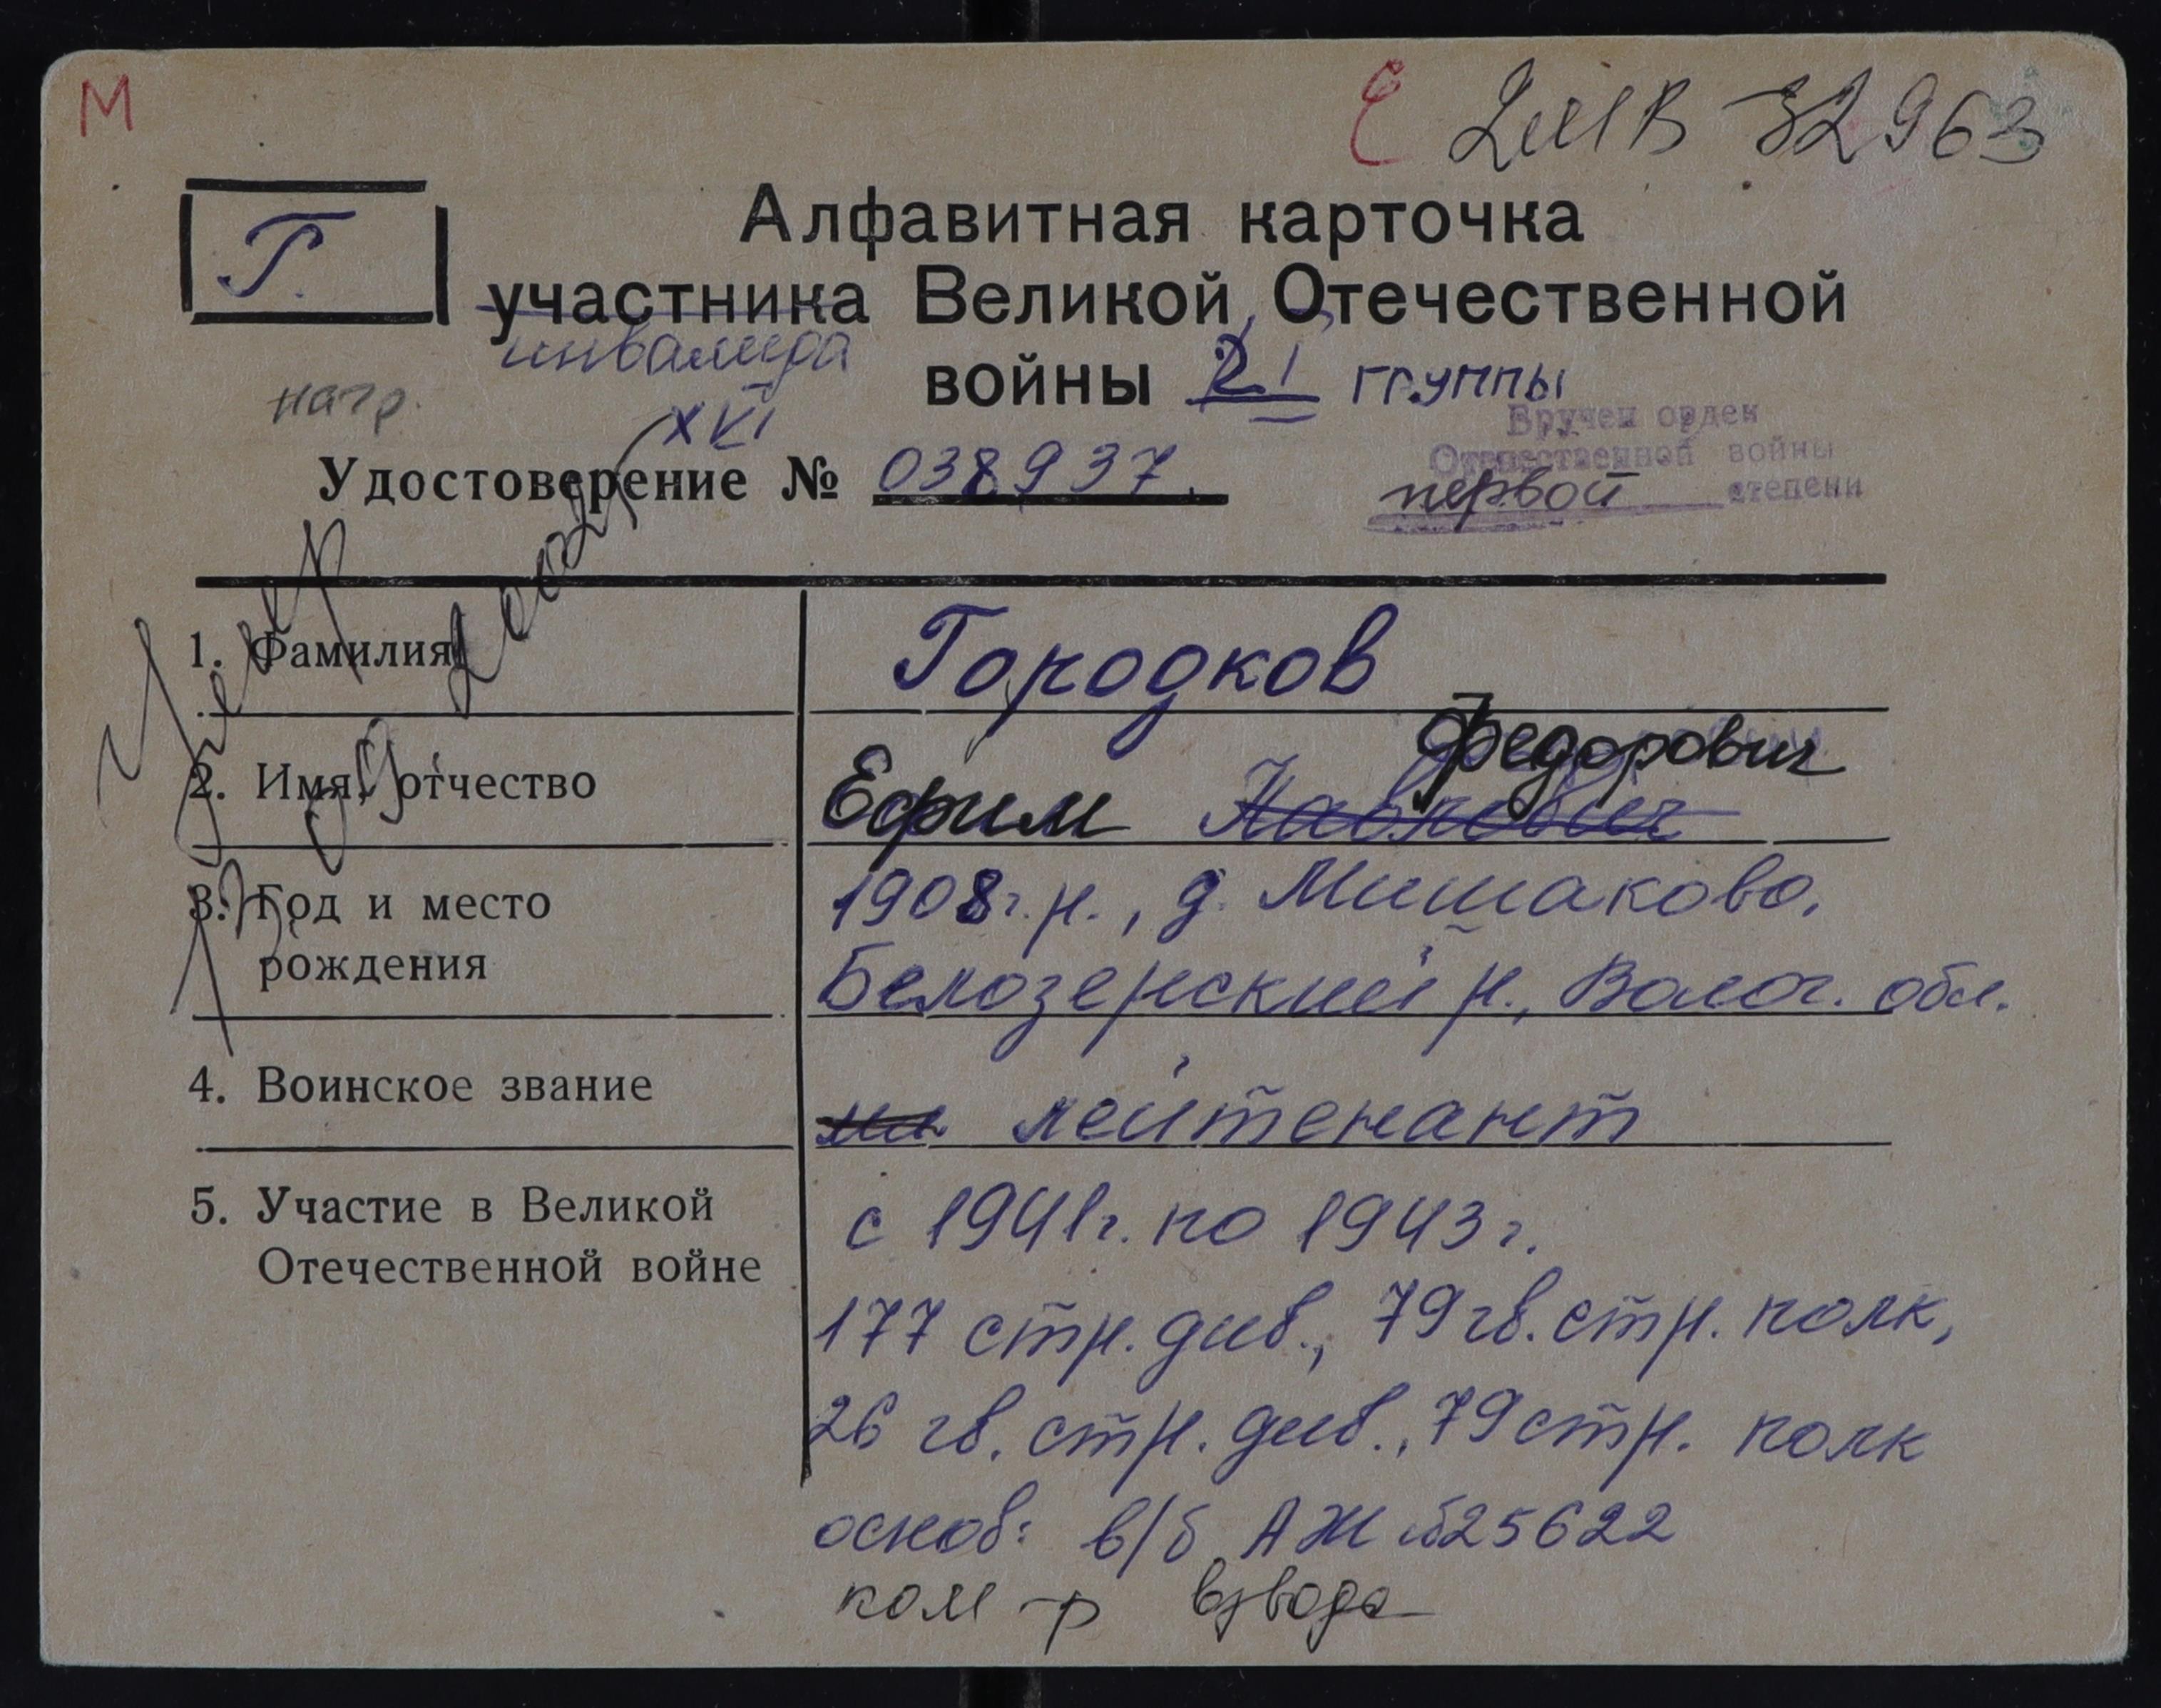 М
32963
Г.
Алфавитная карточка
участника Великой Отечественной
инвалида
войны I группы
нагр.
XVI
Вручен орден
Отечественной войны
первой степени
Удостоверение № 038937.
Умер
1. Фамилия Городков
2. Имя, отчество Ефим Павлович Федорович
3. Год и место рождения
1908г.р., д. Мишаково,
Белозерский р., Волог. обл.
4. Воинское звание мл лейтенант
5. Участие в Великой Отечественной войне
с 1941г. по 1943г.
177 стр. див., 79 гв. стр. полк,
26 гв. стр. див., 79 стр. полк
основ: в/б АЖ №25622
ком-р взвода